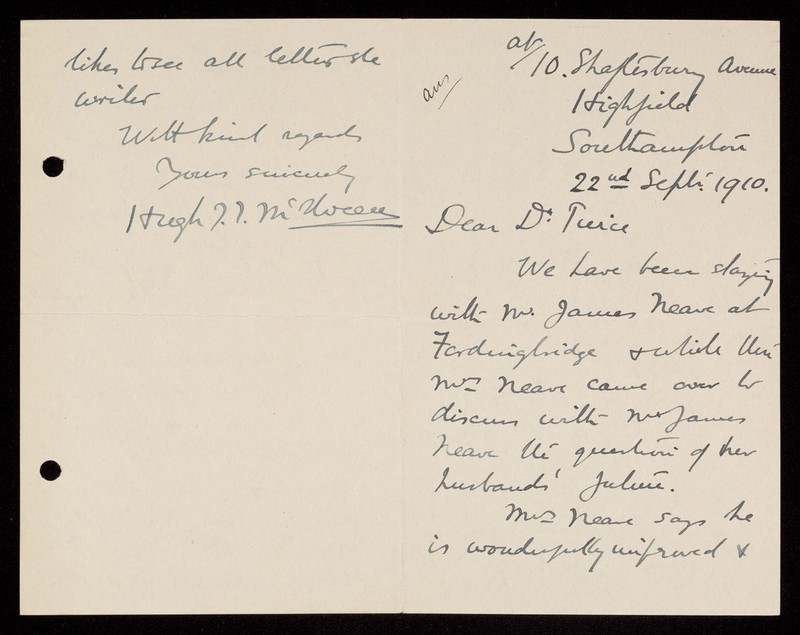 at/10. Shaftesbury Avenue
Highfield
Southampton
22nd Sept. 1910.
ans
Dear Dr.
We have been staying
with Mr. James Neave at
Fordingbridge & while there
Mrs Neave came over to
discuss with Mr James
Neave the question of her
husbands' future.
Mrs Neave says he
is wonderfully improved &
likes to see all letters she
writes
With kind regards
Yours sincerely
Hugh